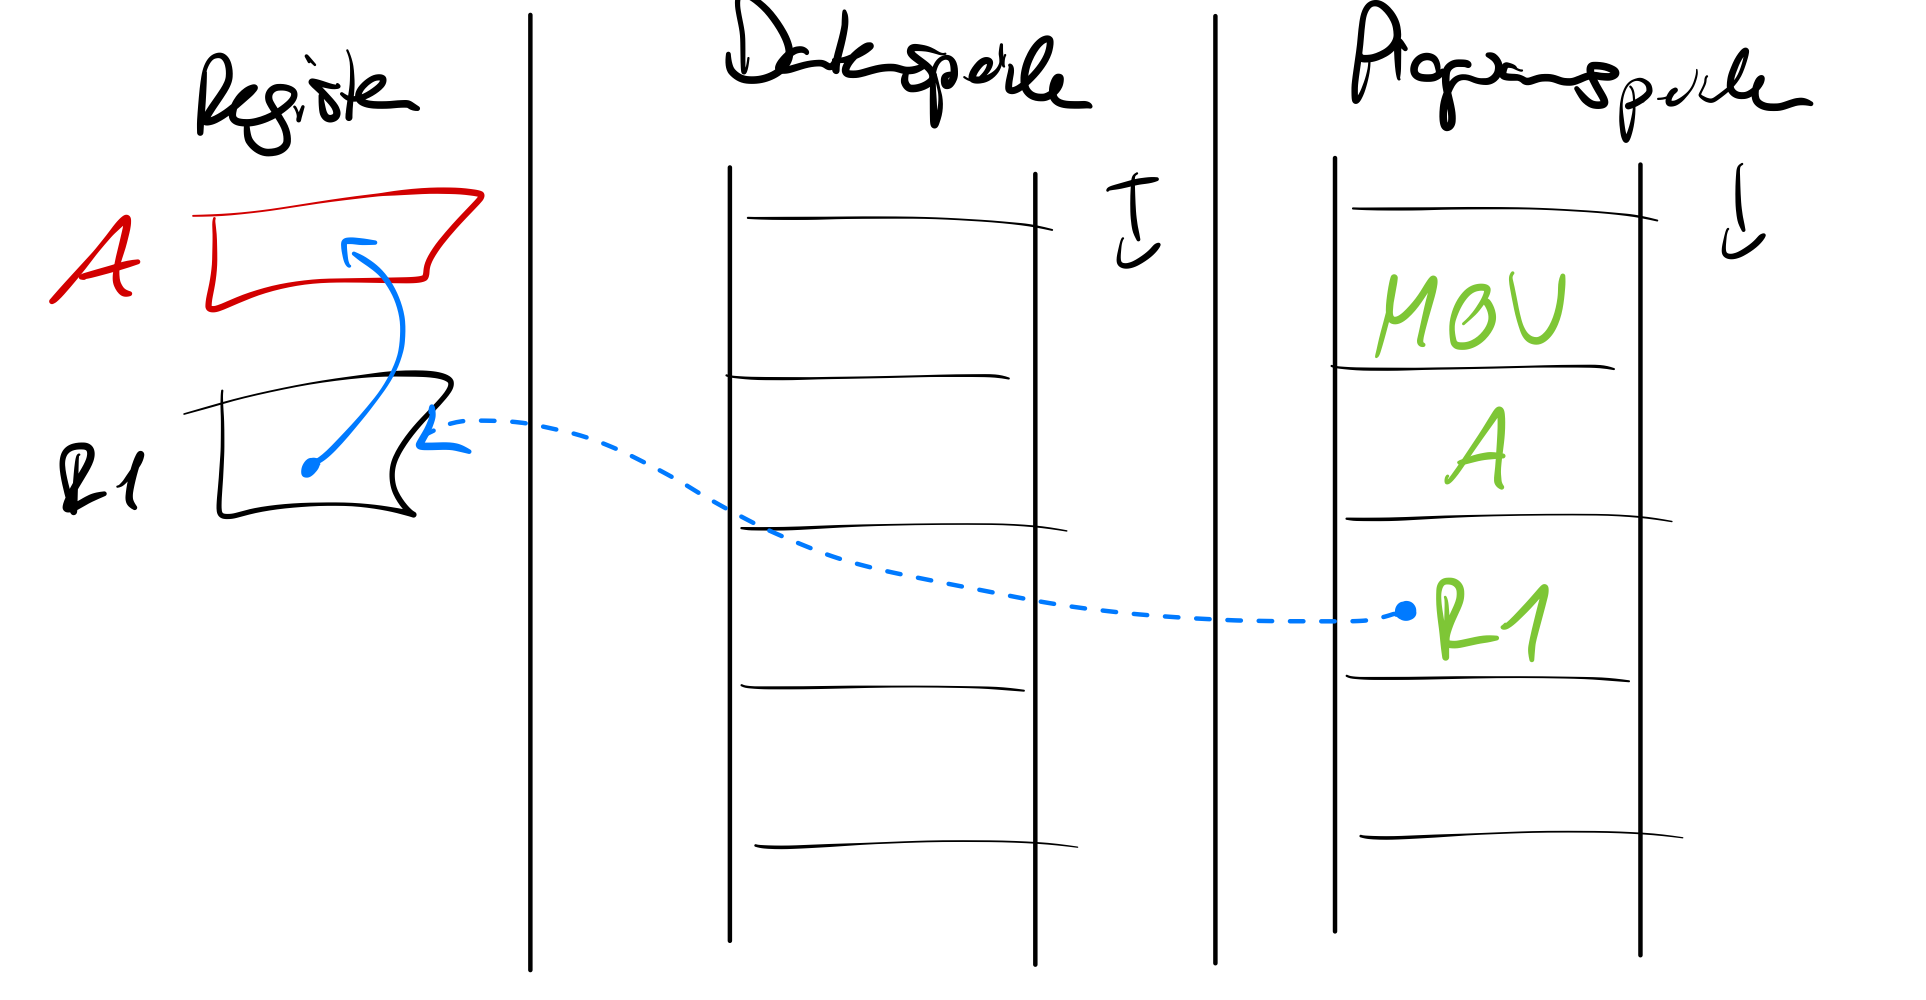 Register
Datenspeicher
Programmspeicher
A
R1
MOV
A
R1